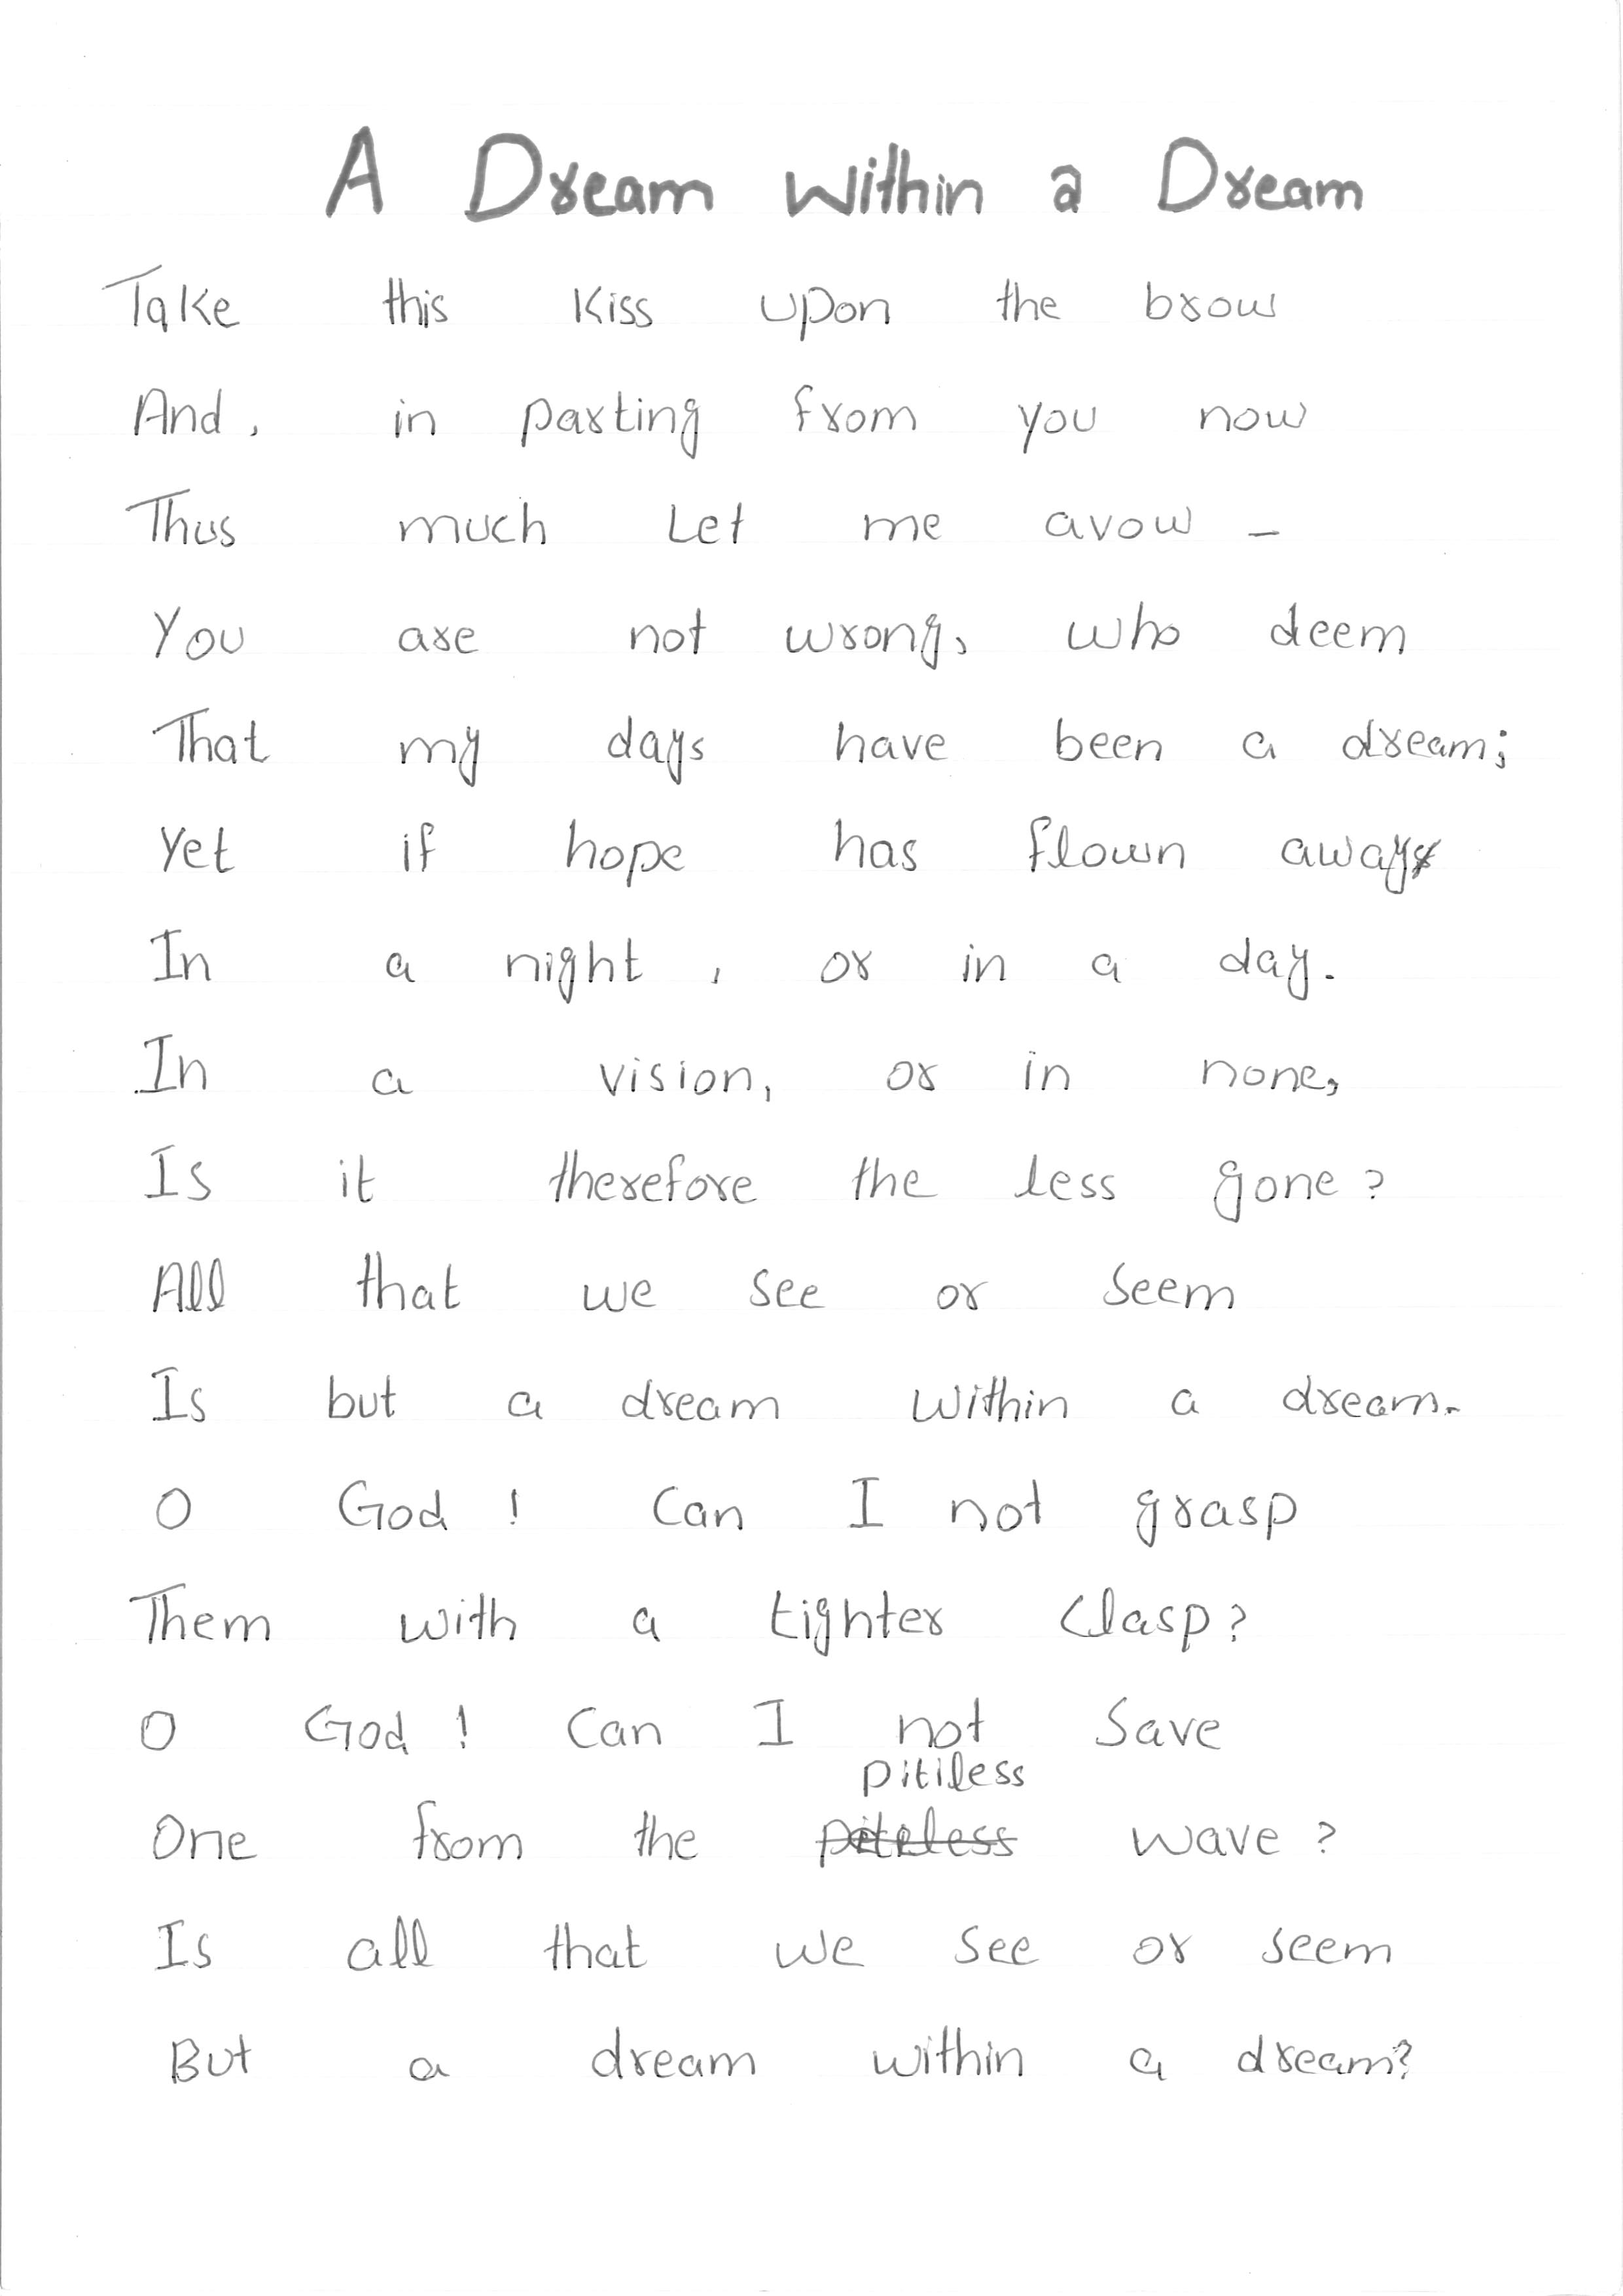 A Dream Within a Dream
Take this Kiss upon the brow
And, in parting from you now
Thus much Let me avow –
You are not wrong, who deem
That my days have been a dream;
Yet if hope has flown away
In a night , or in a day.
In a vision, or in none,
Is it therefore the less gone?
All that we see or seem
Is but a dream within a dream.
O God ! Can I not grasp
Them with a tighter Clasp?
O God ! Can I not Save
pitiless
One from the wave ?
Is all that we see or seem
But a dream within a dream?